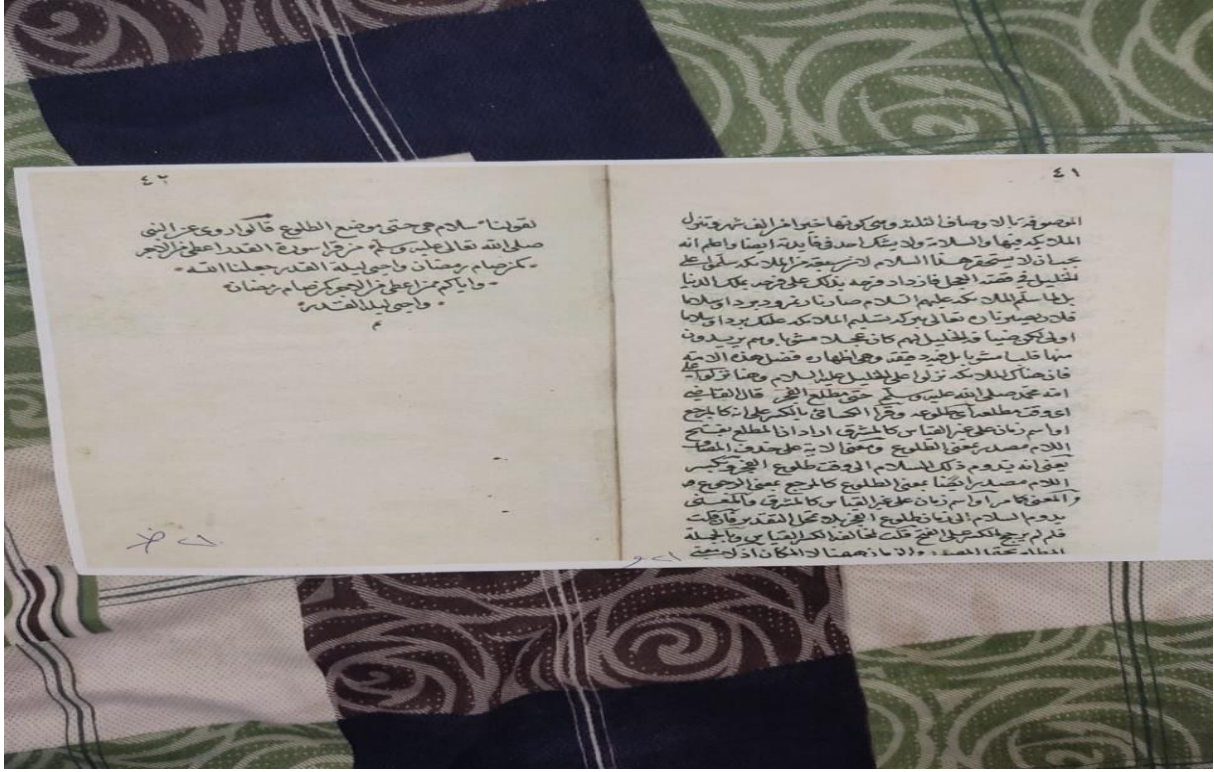 ٤١
الموصوفة بالاوصاف الثلثة وهى كونها خيرا من الف شهر وتنزل
الملايكة فيها والسلامة ولا يشك احد فى فايدته ايضا واعلم انه
يجب ان لا يستحقر هذا السلام لان سبعة من الملائكة سلموا على
الخليل فى قصة العجل فازداد فرحه بذلك على فرحه بملك الدنيا
بل لما سلم الملائكة عليهم السلام صار نار نمرود بردا وسلاما
افلا تصير ناره تعالى ببركة تسليم الملائكة عليك بردا وسلاما
اولى لكن ضيافة الخليل لهم كان عجلا مشويا وهم يريدون
منها قلبا مشويا بل فيه دقيقة وهى اظهار فضل هذه الامة
فان هناك الملائكة نزلوا على الخليل عليه السلام وهنا نزلوا على
امة محمد صلى الله عليه وسلم حتى مطلع الفجر قال القاضى
اى وقت مطلعه اى طلوعه وقرأ الكسائى بالكسر على انه كالمرجع
او اسم زمان على غير القياس كالمشرق اراد ان المطلع بفتح
اللام مصدر بمعنى الطلوع ومعنى الاية على حذف المضاف
يعنى انه يدوم ذلك السلام الى وقت طلوع الفجر وبكسر
اللام مصدر ايضا بمعنى الطلوع كالمرجع بمعنى الرجوع
والمعنى كما مر او اسم زمان على غير القياس كالمشرق والمعنى
يدوم السلام الى زمان طلوع الفجر بلا تمحل التقدير فان قلت
فلم لم يرجح الكسر على الفتح قلت لمخالفة الكسر القياس وبالجملة
المطلع يحتمل المصدر والزمان ههنا لا المكان اذ لا معنى
٤٢
لقولنا سلام هى حتى موضع الطلوع قالوا روى عن النبى
صلى الله تعالى عليه وسلم من قرأ سورة القدر اعطى من الاجر
كمن صام رمضان واحيى ليلة القدر جعلنا الله
واياكم ممن اعطى من الاجر كمن صام رمضان
واحيى ليلة القدر
م